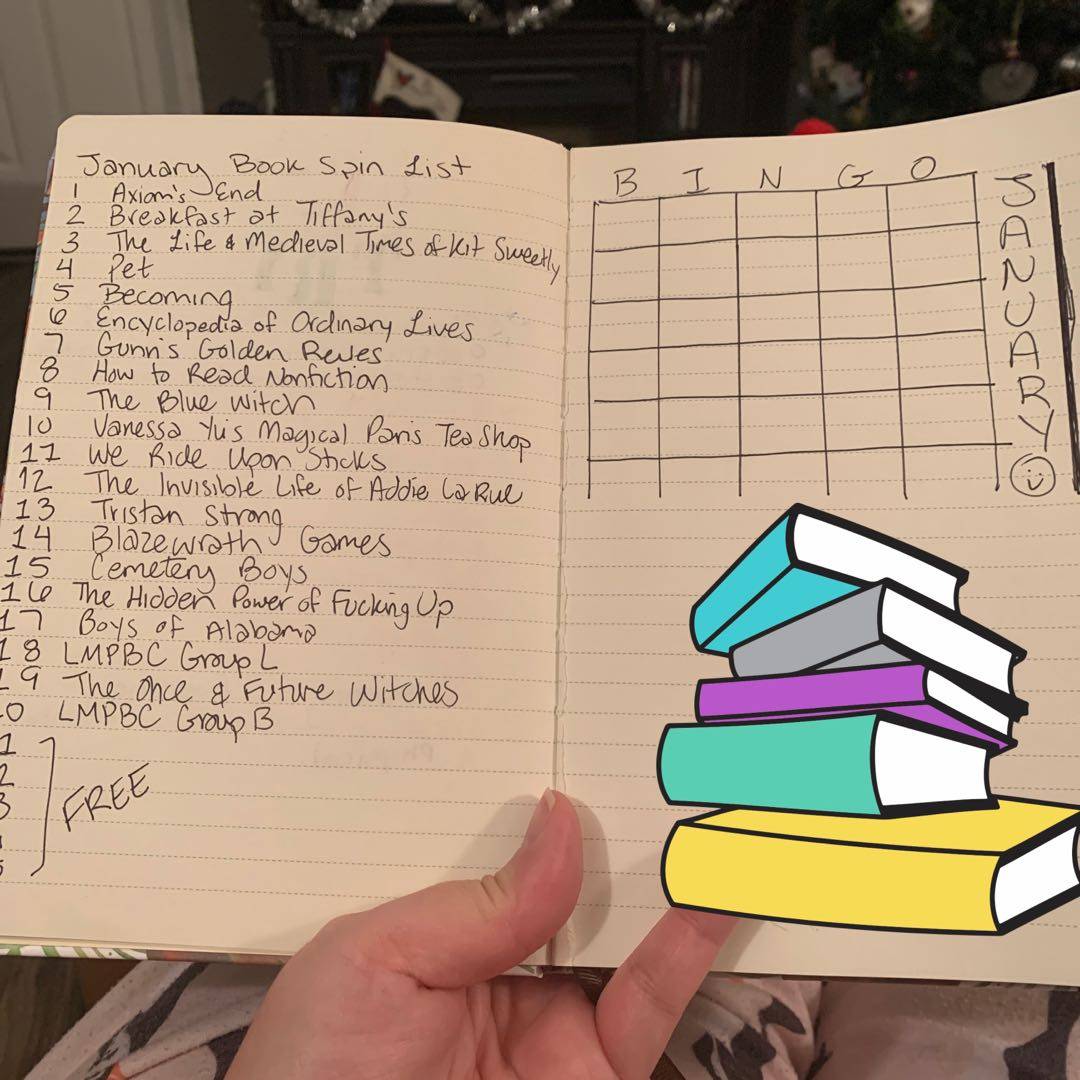 January Book Spin List
1 Axiom's End
2 Breakfast at Tiffany's
3 The Life & Medieval Times of Kit Sweetly
4 Pet
5 Becoming
6 Encyclopedia of Ordinary Lives
7 Gunn's Golden Rules
8 How to Read Nonfiction
9 The Blue Witch
10 Vanessa Yu's Magical Paris Tea Shop
11 We Ride Upon Sticks
12 The Invisible Life of Addie LaRue
13 Tristan Strong
14 Blazewrath Games
15 Cemetery Boys
16 The Hidden Power of Fucking Up
17 Boys of Alabama
18 LMPBC Group L
19 The Once & Future Witches
0 LMPBC Group B
1
2
3
FREE
B I N G O
JANUARY